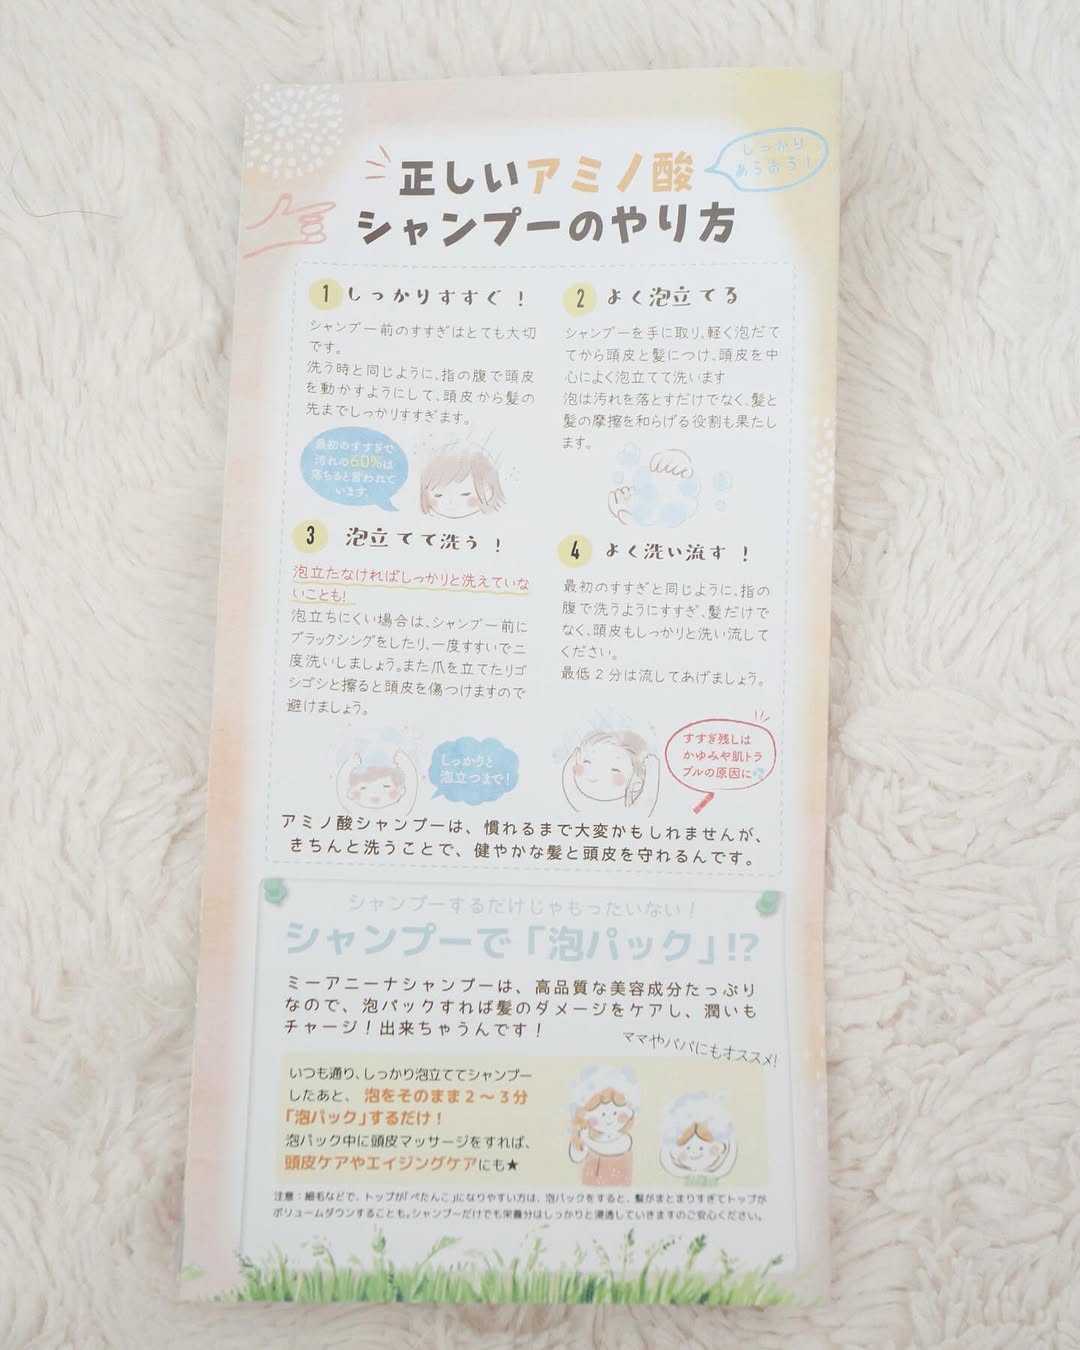 正しいアミノ酸
シャンプーのやり方
しっかり
あらおう!
1 しっかりすすぐ!
シャンプー前のすすぎはとても大切
です。
洗う時と同じように、指の腹で頭皮
を動かすようにして、頭皮から髪の
先までしっかりすすぎます。
最初のすすぎで
汚れの60%は
落ちると言われて
います。
2 よく泡立てる
シャンプーを手に取り、軽く泡だて
てから頭皮と髪につけ、頭皮を中
心によく泡立てて洗います
泡は汚れを落とすだけでなく、髪と
髪の摩擦を和らげる役割も果たし
ます。
3 泡立てて洗う!
泡立たなければしっかりと洗えていな
いことも!
泡立ちにくい場合は、シャンプー前に
ブラックシングをしたり、一度すすいで二
度洗いしましょう。また爪を立てたりゴ
シゴシと擦ると頭皮を傷つけますので
避けましょう。
しっかりと
泡立つまで!
4 よく洗い流す!
最初のすすぎと同じように、指の
腹で洗うようにすすぎ、髪だけで
なく、頭皮もしっかりと洗い流して
ください。
最低2分は流してあげましょう。
すすぎ残しは
かゆみや肌トラ
ブルの原因に
アミノ酸シャンプーは、慣れるまで大変かもしれませんが、
きちんと洗うことで、健やかな髪と頭皮を守れるんです。
シャンプーするだけじゃもったいない!
シャンプーで「泡パック」!?
ミーアニーナシャンプーは、高品質な美容成分たっぷり
なので、泡パックすれば髪のダメージをケアし、潤いも
チャージ!出来ちゃうんです!
ママやパパにもオススメ!
いつも通り、しっかり泡立ててシャンプー
したあと、泡をそのまま2~3分
「泡パック」するだけ!
泡パック中に頭皮マッサージをすれば、
頭皮ケアやエイジングケアにも★
注意:細毛などで、トップが「ぺたんこ」になりやすい方は、泡パックをすると、髪がまとまりすぎてトップが
ボリュームダウンすることも。シャンプーだけでも栄養分はしっかりと浸透していきますのでご安心ください。